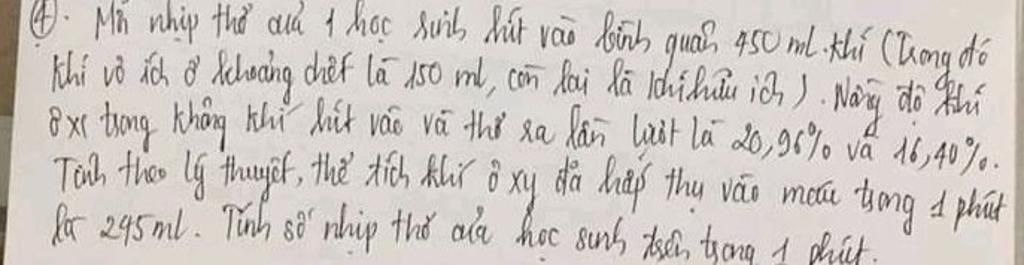 ④. Mỗi nhịp thở của 1 học sinh hít vào bình quân 450 ml khí (Trong đó
khí vô ích ở khoảng chết là 150 ml, còn lại là khí hữu ích). Nồng độ khí
ôxi trong không khí hít vào và thở ra lần lượt là 20,96% và 16,40%.
Tính theo lý thuyết, thể tích khí ô xy đã hấp thụ vào máu trong 1 phút
là 295 ml. Tính số nhịp thở của học sinh trên trong 1 phút.